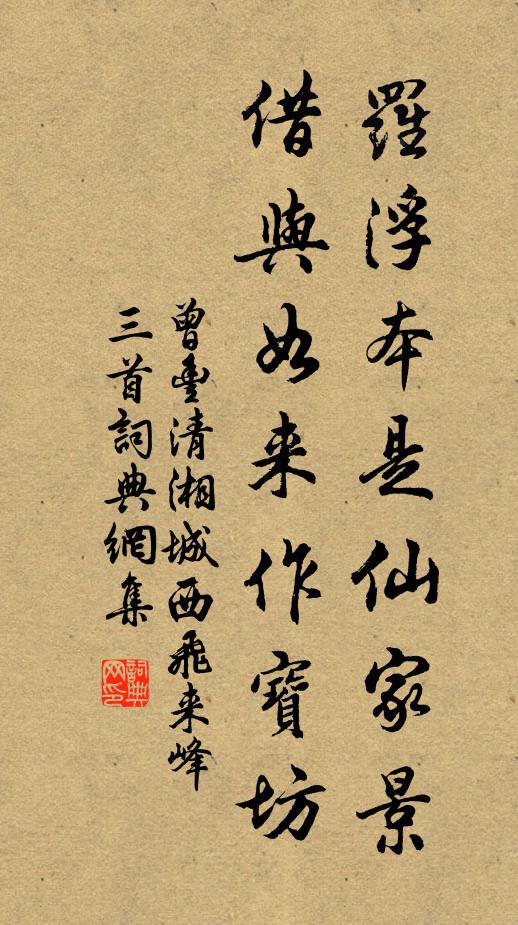 羅浮本是仙家景
借與如来作寶坊
曾豐清湘城西飛来峰
三首詞典網集
詞典
网印